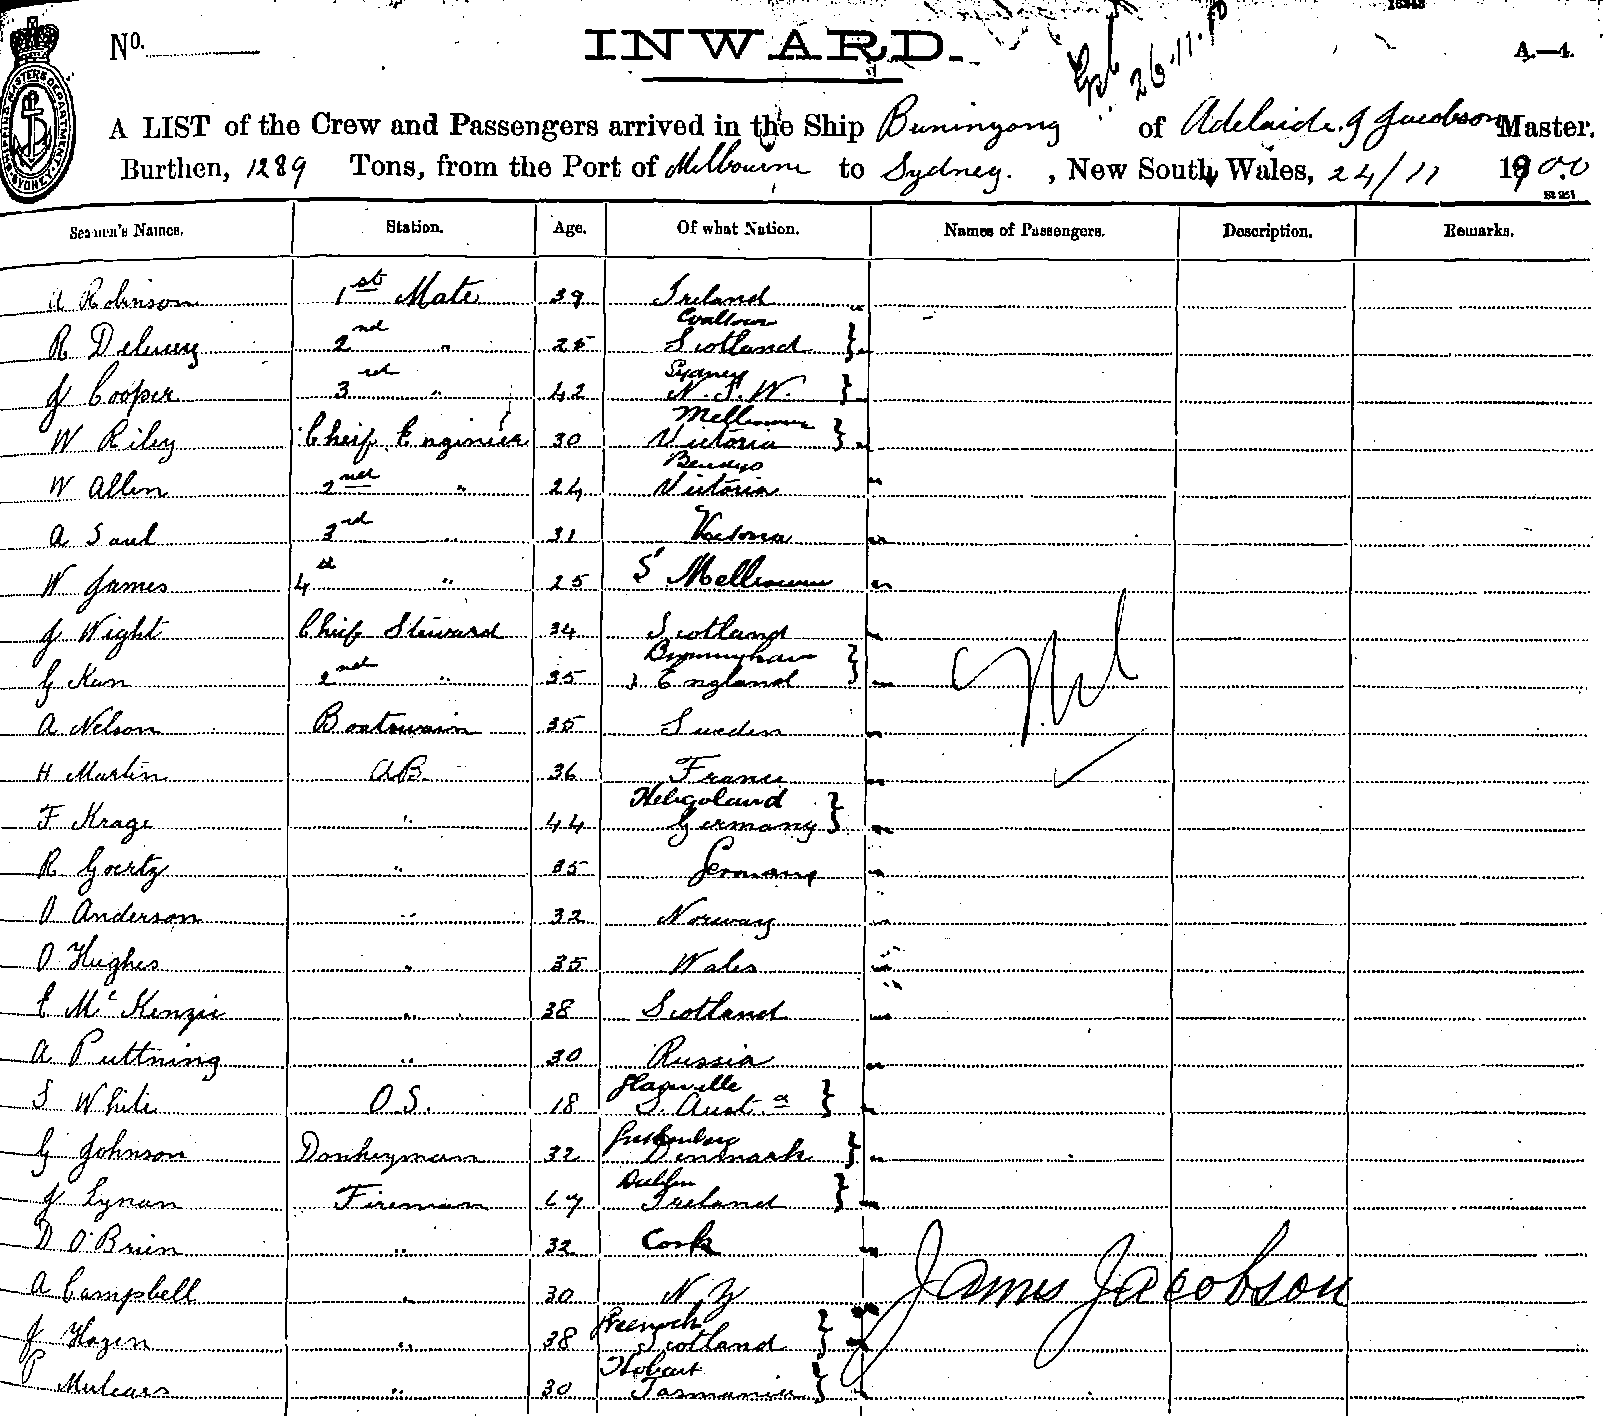 No.
INWARD.
26.11.00
A.—4.
A LIST of the Crew and Passengers arrived in the Ship Buninyong of Adelaide. J Jacobson Master.
Burthen, 1289 Tons, from the Port of Melbourne to Sydney. , New South Wales, 24/11 1900
Seamen's Names. Station. Age. Of what Nation. Names of Passengers. Description. Remarks.
A Robinson 1st Mate 39 Ireland
R 2nd " 25 Scotland }
J Cooper 3rd " 42 Sydney N.S.W. }
W Riley Cheif Engineer 30 Melbourne Victoria }
W Allen 2nd " 24 Victoria
A Saul 3rd " 31 Victoria
W James 4th " 25 S Melbourne
J Wight Cheif Steward 34 Scotland
G 2nd " 35 Birmingham England }
A Nelson Boatswain 35 Sweden
H Martin A.B. 36 France
Nil
F Krage " 44 Heligoland Germany }
R Goertz " 35 Germany
O Anderson " 32 Norway
O Hughes " 35 Wales
E McKenzie " 38 Scotland
A Puttning " 30 Russia
S White O.S. 18 S. Aust.a }
G Johnson Donkeyman 32 Denmark }
J Lynan Fireman 47 Dublin Ireland }
D O'Brien " 32 Cork
A Campbell " 30 N.Z
James Jacobson
J Hagen " 38 Greenock Scotland }
P " 30 Hobart Tasmania }